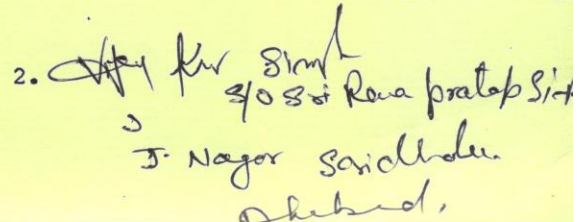 2. Vijay Kr Singh
S/O Sri Rana pratap Sin
J. Nagar Saridhela
Dhanbad.